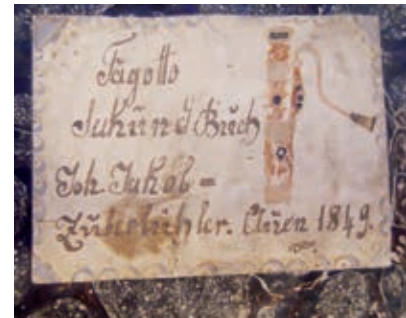 Fagotto
Sekund Buch
Joh Jakob =
Zuberbühler. Auen 1849.